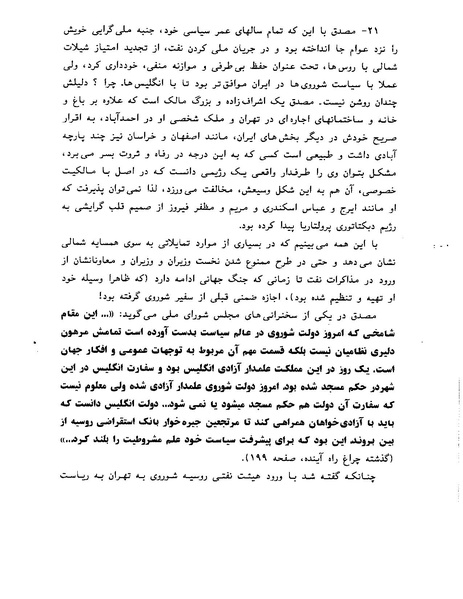 ۲۱- مصدق با این که تمام سالهای عمر سیاسی خود، جنبه ملی گرایی خویش
را نزد عوام جا انداخته بود و در جریان ملی کردن نفت، از تجدید امتیاز شیلات
شمالی با روس‌ها، تحت عنوان حفظ بی‌طرفی و موازنه منفی، خودداری کرد، ولی
عملا با سیاست شوروی‌ها در ایران موافق‌تر بود تا با انگلیس‌ها. چرا ؟ دلیلش
چندان روشن نیست. مصدق یک اشراف‌زاده و بزرگ مالک است که علاوه بر باغ و
خانه و ساختمانهای اجاره‌ای در تهران و ملک شخصی او در احمدآباد، به اقرار
صریح خودش در دیگر بخش‌های ایران، مانند اصفهان و خراسان نیز چند پارچه
آبادی داشت و طبیعی است کسی که به این درجه در رفاه و ثروت بسر می‌برد،
مشکل بتوان وی را طرفدار واقعی یک رژیمی دانست که در اصل با مالکیت
خصوصی، آن هم به این شکل وسیعش، مخالفت می‌ورزد، لذا نمی‌توان پذیرفت که
او مانند ایرج و عباس اسکندری و مریم و مظفر فیروز از صمیم قلب گرایشی به
رژیم دیکتاتوری پرولتاریا پیدا کرده بود.
با این همه می‌بینیم که در بسیاری از موارد تمایلاتی به سوی همسایه شمالی
نشان می‌دهد و حتی در طرح ممنوع شدن نخست وزیران و وزیران و معاونانشان از
ورود در مذاکرات نفت تا زمانی که جنگ جهانی ادامه دارد (که ظاهرا وسیله خود
او تهیه و تنظیم شده بود)، اجازه ضمنی قبلی از سفیر شوروی گرفته بود!
مصدق در یکی از سخنرانی‌های مجلس شورای ملی می‌گوید: «... این مقام
شامخی که امروز دولت شوروی در عالم سیاست بدست آورده است تمامش مرهون
دلیری نظامیان نیست بلکه قسمت مهم آن مربوط به توجهات عمومی و افکار جهان
است. یک روز در این مملکت علمدار آزادی انگلیس بود و سفارت انگلیس در این
شهر در حکم مسجد شده بود. امروز دولت شوروی علمدار آزادی شده ولی معلوم نیست
که سفارت آن دولت هم حکم مسجد میشود یا نمی شود... دولت انگلیس دانست که
باید با آزادی‌خواهان همراهی کند تا مرتجعین جیره‌خوار بانک استقراضی روسیه از
بین بروند. این بود که برای پیشرفت سیاست خود علم مشروطیت را بلند کرد...»
(گذشته چراغ راه آینده، صفحه ۱۹۹).
چنانکه گفته شد با ورود هیئت نفتی روسیه شوروی به تهران به ریاست